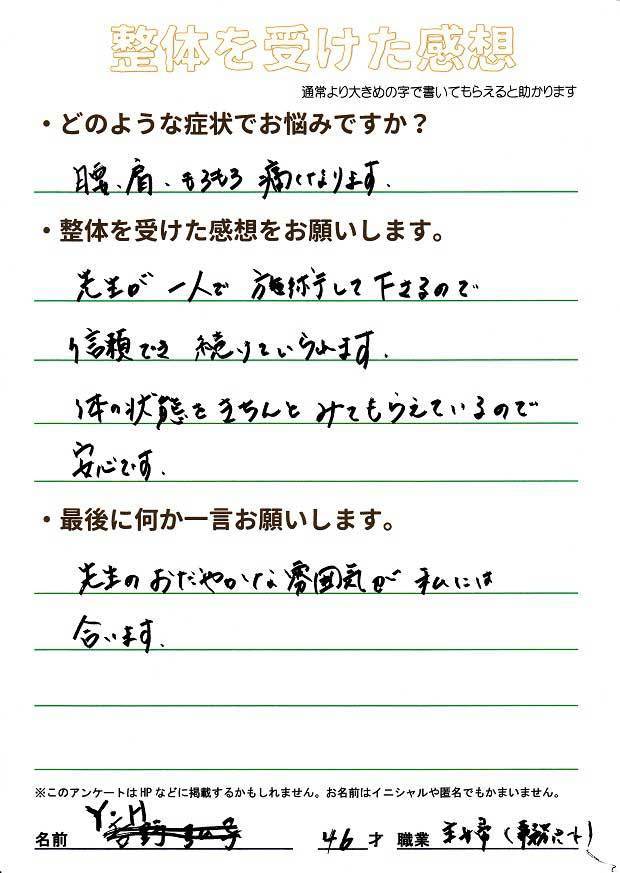 整体を受けた感想
通常より大きめの字で書いてもらえると助かります
・どのような症状でお悩みですか?
腰、肩、もろもろ 痛くなります。
・整体を受けた感想をお願いします。
先生が 一人で 施術して下さるので
信頼でき 続けていられます。
体の状態をきちんと みてもらえているので
安心です。
・最後に何か一言お願いします。
先生のおだやかな雰囲気が 私には
合います。
※このアンケートはHPなどに掲載するかもしれません。お名前はイニシャルや匿名でもかまいません。
Y・H
名前 46 才 職業 主婦